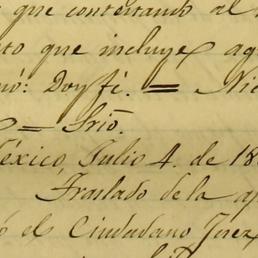 que contestando al
to que incluye ag
nó: Doy fé. = Nic
= Srio.
México, Julio 4. de 18
Traslado de la a
ó el Ciudadano Juez